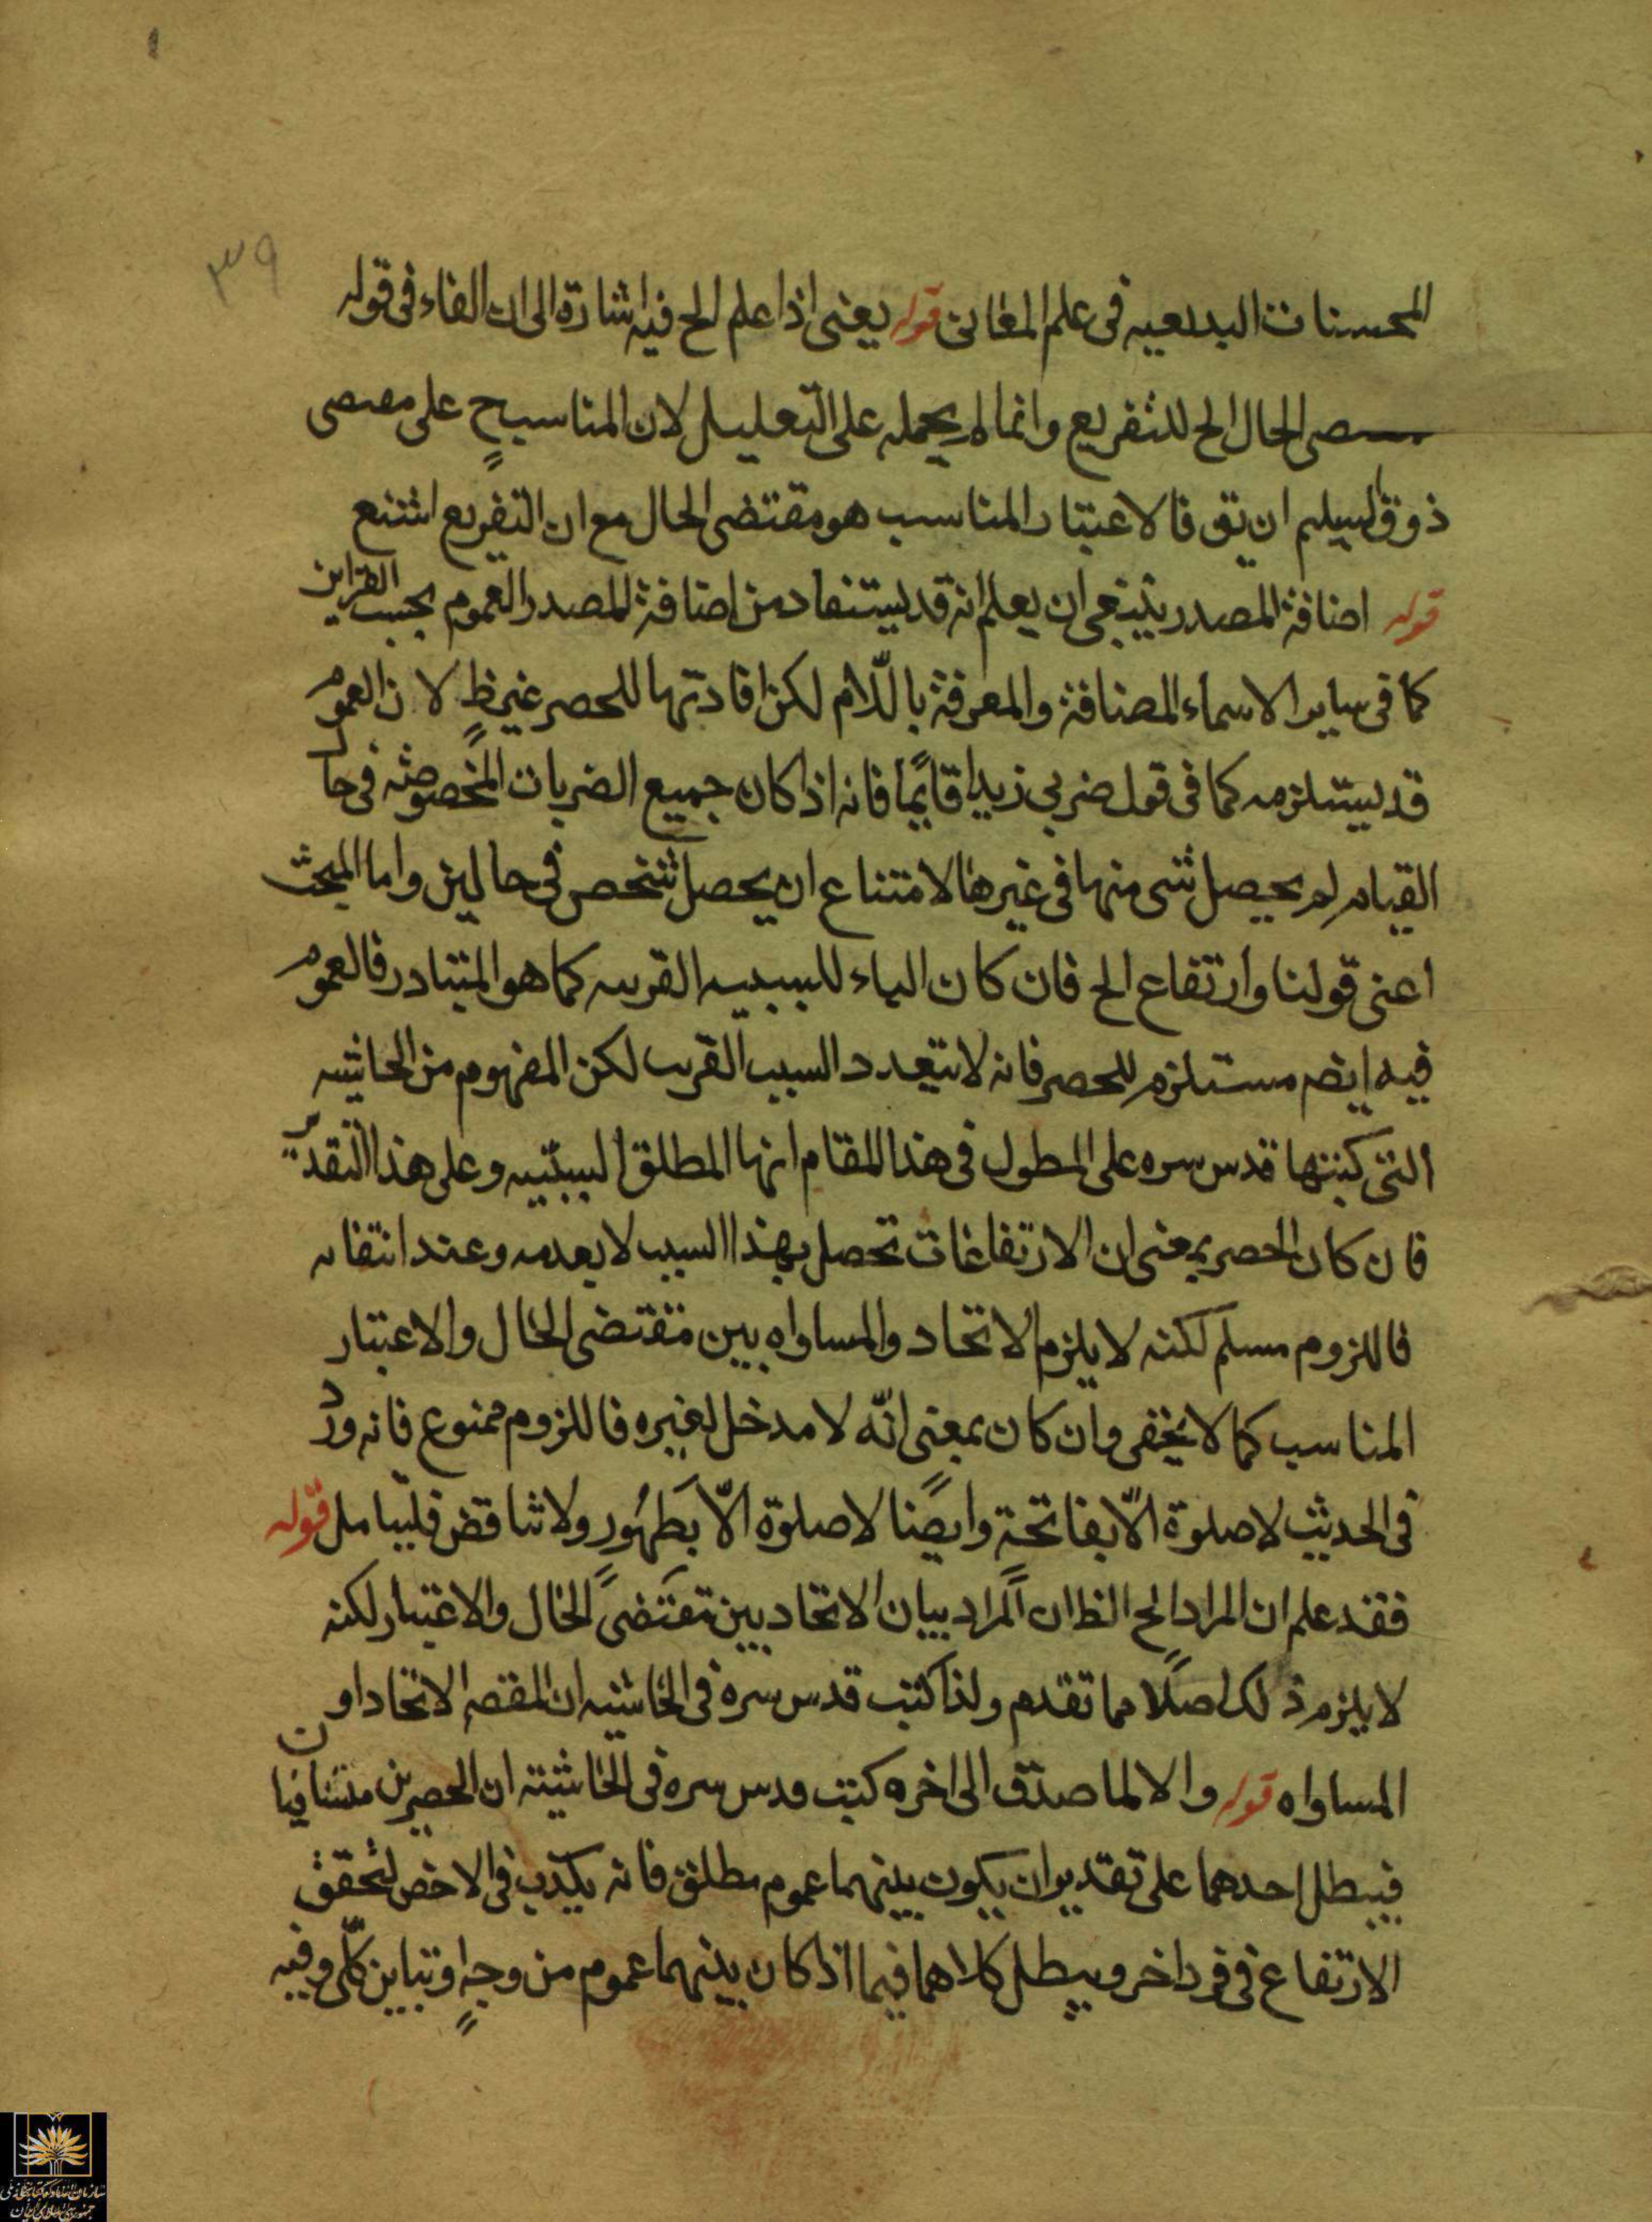 ٣٩
المحسنات البديعيه فى علم المعانى قوله يعنى اذا علم الخ فيه اشارة الى ان الفاء فى قوله
الحال الخ للتفريع وانما لم يحمله على التعليل لان المناسب ح على
ذوق سليم ان يق فالاعتبار المناسب هو مقتضى الحال مع ان التفريع اشنع
قوله اضافة المصدر ينبغى ان يعلم انه قد يستفاد من اضافة المصدر العموم بحسب القراين
كما فى ساير الاسماء المضافة والمعرفة باللّام لكن افادتها للحصر غير ظ لان العموم
قد يستلزمه كما فى قول ضربي زيدا قايمًا فانه اذا كان جميع الضربات المخصوصه فى حال
القيام لم يحصل شى منها فى غيرها لامتناع ان يحصل شخص فى حالين واما المبحث
اعنى قولنا وارتفاع الخ فان كان الباء للسببيه القريبه كما هو المتبادر فالعموم
فيه ايضه مستلزم للحصر فانه لا يتعدد السبب القريب لكن المفهوم من الحاشيه
التى كتبها قدس سره على المطول فى هذا المقام انها المطلق السببيّه وعلى هذا التقدير
فان كان الحصر بمعنى ان الارتفاعات تحصل بهذا السبب لا بعدمه وعند انتفائه
فاللزوم مسلم لكنه لا يلزم الاتحاد والمساواه بين مقتضى الحال والاعتبار
المناسب كما لا يخفى وان كان بمعنى انّه لا مدخل لغيره فاللزوم ممنوع فانه ورد
فى الحديث لاصلوة الّا بفاتحة وايضًا لاصلوة الّا بطَهُورٍ ولا تناقض فليتامل قوله
فقد علم ان المراد الخ الظ ان المراد بيان الاتحاد بين مقتضى الحال والاعتبار لكنه
لا يلزم ذلك اصلًا مما تقدم ولذا كتب قدس سره فى الحاشيه ان المقصه الاتحاد او
المساواه قوله والا لما صدق الى اخره كتب قدس سره فى الحاشيته ان الحصرين متنافيان
فيبطل احدهما على تقدير ان يكون بينهما عموم مطلق فانه يكذب فى الاخص لتحقق
الارتفاع فى فرد اخر ويبطل كلاهما فيما اذا كان بينهما عموم من وجهٍ او تباين كلّى وفيه